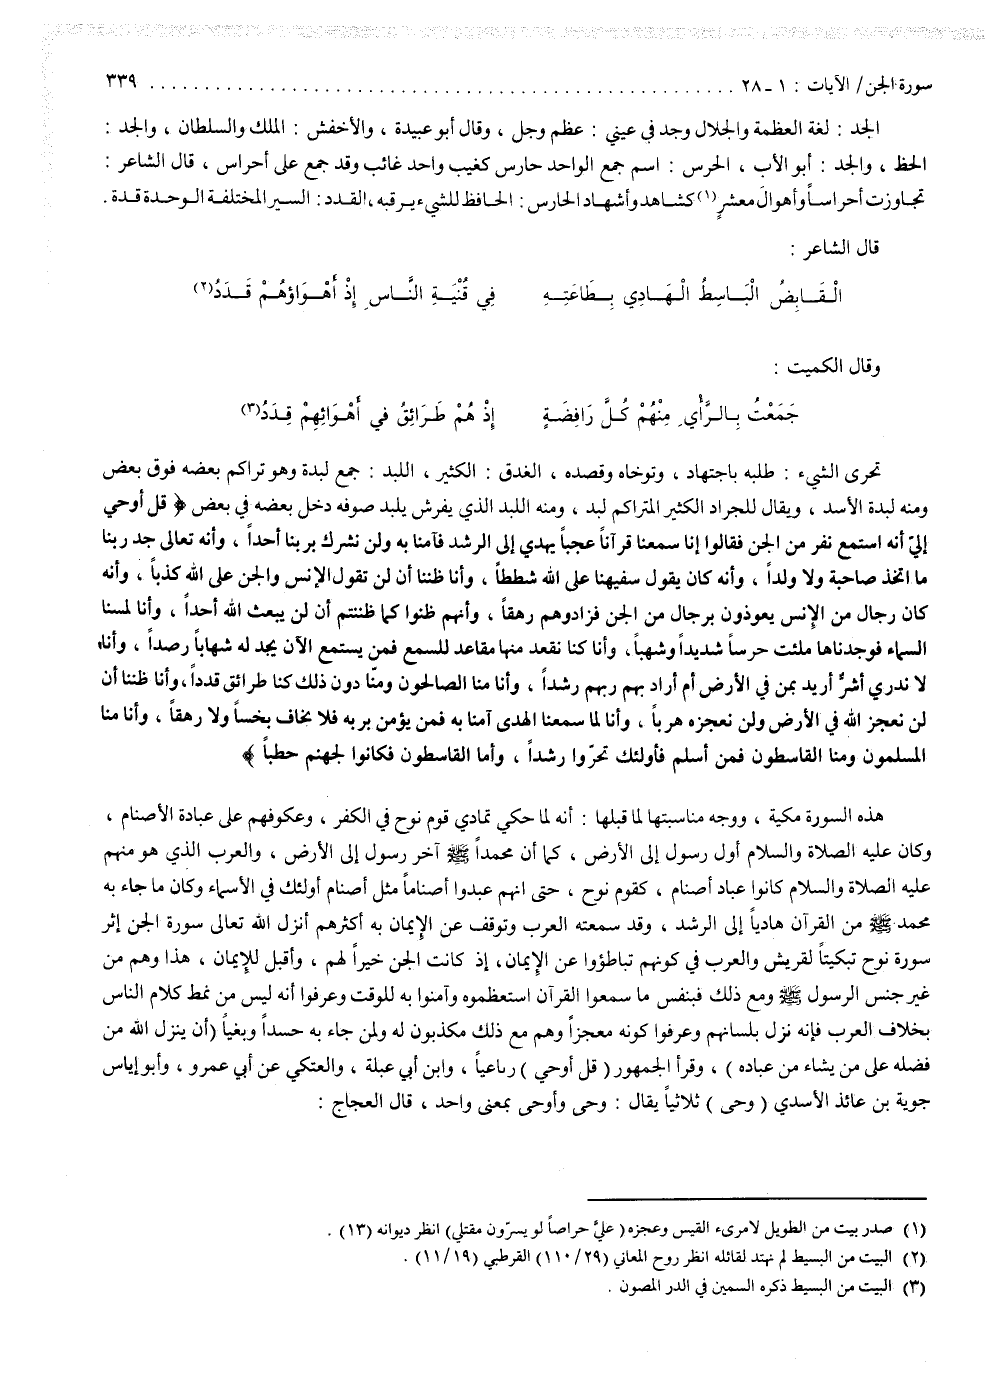 سورة الجن/ الآيات : ١ ـ ٢٨ . . . . . . . . . . . . . . . . . . . . . . . . . . . . . . . . . . . . . . . . . . . . . . . . . . . . . . ٣٣٩
الجد : لغة العظمة والجلال وجد في عيني : عظم وجل ، وقال أبو عبيدة ، والأخفش : الملك والسلطان ، والجد :
الحظ ، والجد : أبو الأب ، الحرس : اسم جمع الواحد حارس كغيب واحد غائب وقد جمع على أحراس ، قال الشاعر :
تجاوزت أحراساً وأهوالَ معشرٍ(١) كشاهد وأشهاد الحارس : الحافظ للشيء يرقبه ، القدد : السير المختلفة الوحدة قدة .
قال الشاعر :
الْقَابِضُ الْبَاسِطُ الْهَادِي بِطَاعَتِهِ فِي قُنْيَةِ النَّاسِ إِذْ أَهْوَاؤُهُمْ قَدَدُ(٢)
وقال الكميت :
جَمَعْتُ بِالرَّأْيِ مِنْهُمْ كُلَّ رَافِضَةٍ إِذْ هُمْ طَرَائِقُ في أَهْوَائِهِمْ قِدَدُ(٣)
تحرى الشيء : طلبه باجتهاد ، وتوخاه وقصده ، الغدق : الكثير ، اللبد : جمع لبدة وهو تراكم بعضه فوق بعض
ومنه لبدة الأسد ، ويقال للجراد الكثير المتراكم لبد ، ومنه اللبد الذي يفرش يلبد صوفه دخل بعضه في بعض ﴿ قل أوحي
إليّ أنه استمع نفر من الجن فقالوا إنا سمعنا قرآناً عجباً يهدي إلى الرشد فآمنا به ولن نشرك بربنا أحداً ، وأنه تعالى جد ربنا
ما اتخذ صاحبة ولا ولداً ، وأنه كان يقول سفيهنا على الله شططاً ، وأنا ظننا أن لن تقول الإنس والجن على الله كذباً ، وأنه
كان رجال من الإنس يعوذون برجال من الجن فزادوهم رهقاً ، وأنهم ظنوا كما ظننتم أن لن يبعث الله أحداً ، وأنا لمسنا
السماء فوجدناها ملئت حرساً شديداً وشهباً، وأنا كنا نقعد منها مقاعد للسمع فمن يستمع الآن يجد له شهاباً رصداً ، وأنا
لا ندري أشرٌّ أريد بمن في الأرض أم أراد بهم ربهم رشداً ، وأنا منا الصالحون ومنّا دون ذلك كنا طرائق قدداً ، وأنا ظننا أن
لن نعجز الله في الأرض ولن نعجزه هرباً ، وأنا لما سمعنا الهدى آمنا به فمن يؤمن بربه فلا يخاف بخساً ولا رهقاً ، وأنا منا
المسلمون ومنا القاسطون فمن أسلم فأولئك تحرّوا رشداً ، وأما القاسطون فكانوا لجهنم حطباً ﴾
هذه السورة مكية ، ووجه مناسبتها لما قبلها : أنه لما حكي تمادي قوم نوح في الكفر ، وعكوفهم على عبادة الأصنام ،
وكان عليه الصلاة والسلام أول رسول إلى الأرض ، كما أن محمداً ﷺ آخر رسول إلى الأرض ، والعرب الذي هو منهم
عليه الصلاة والسلام كانوا عباد أصنام ، كقوم نوح ، حتى انهم عبدوا أصناماً مثل أصنام أولئك في الأسماء وكان ما جاء به
محمد ﷺ من القرآن هادياً إلى الرشد ، وقد سمعته العرب وتوقف عن الإيمان به أكثرهم أنزل الله تعالى سورة الجن إثر
سورة نوح تبكيتاً لقريش والعرب في كونهم تباطؤوا عن الإيمان، إذ كانت الجن خيراً لهم ، وأقبل للإيمان ، هذا وهم من
غير جنس الرسول ﷺ ومع ذلك فبنفس ما سمعوا القرآن استعظموه وآمنوا به للوقت وعرفوا أنه ليس من نمط كلام الناس
بخلاف العرب فإنه نزل بلسانهم وعرفوا كونه معجزاً وهم مع ذلك مكذبون له ولمن جاء به حسداً وبغياً (أن ينزل الله من
فضله على من يشاء من عباده ) ، وقرأ الجمهور ( قل أوحي ) رباعياً ، وابن أبي عبلة ، والعتكي عن أبي عمرو ، وأبو إياس
جوية بن عائذ الأسدي ( وحى ) ثلاثياً يقال : وحى وأوحى بمعنى واحد ، قال العجاج :
(١) صدر بيت من الطويل لامرىء القيس وعجزه ( عليَّ حراصاً لو يسرّون مقتلي) انظر ديوانه (١٣) .
(٢) البيت من البسيط لم نهتد لقائله انظر روح المعاني (١١٠/٢٩) القرطبي (١١/١٩) .
(٣) البيت من البسيط ذكره السمين في الدر المصون .